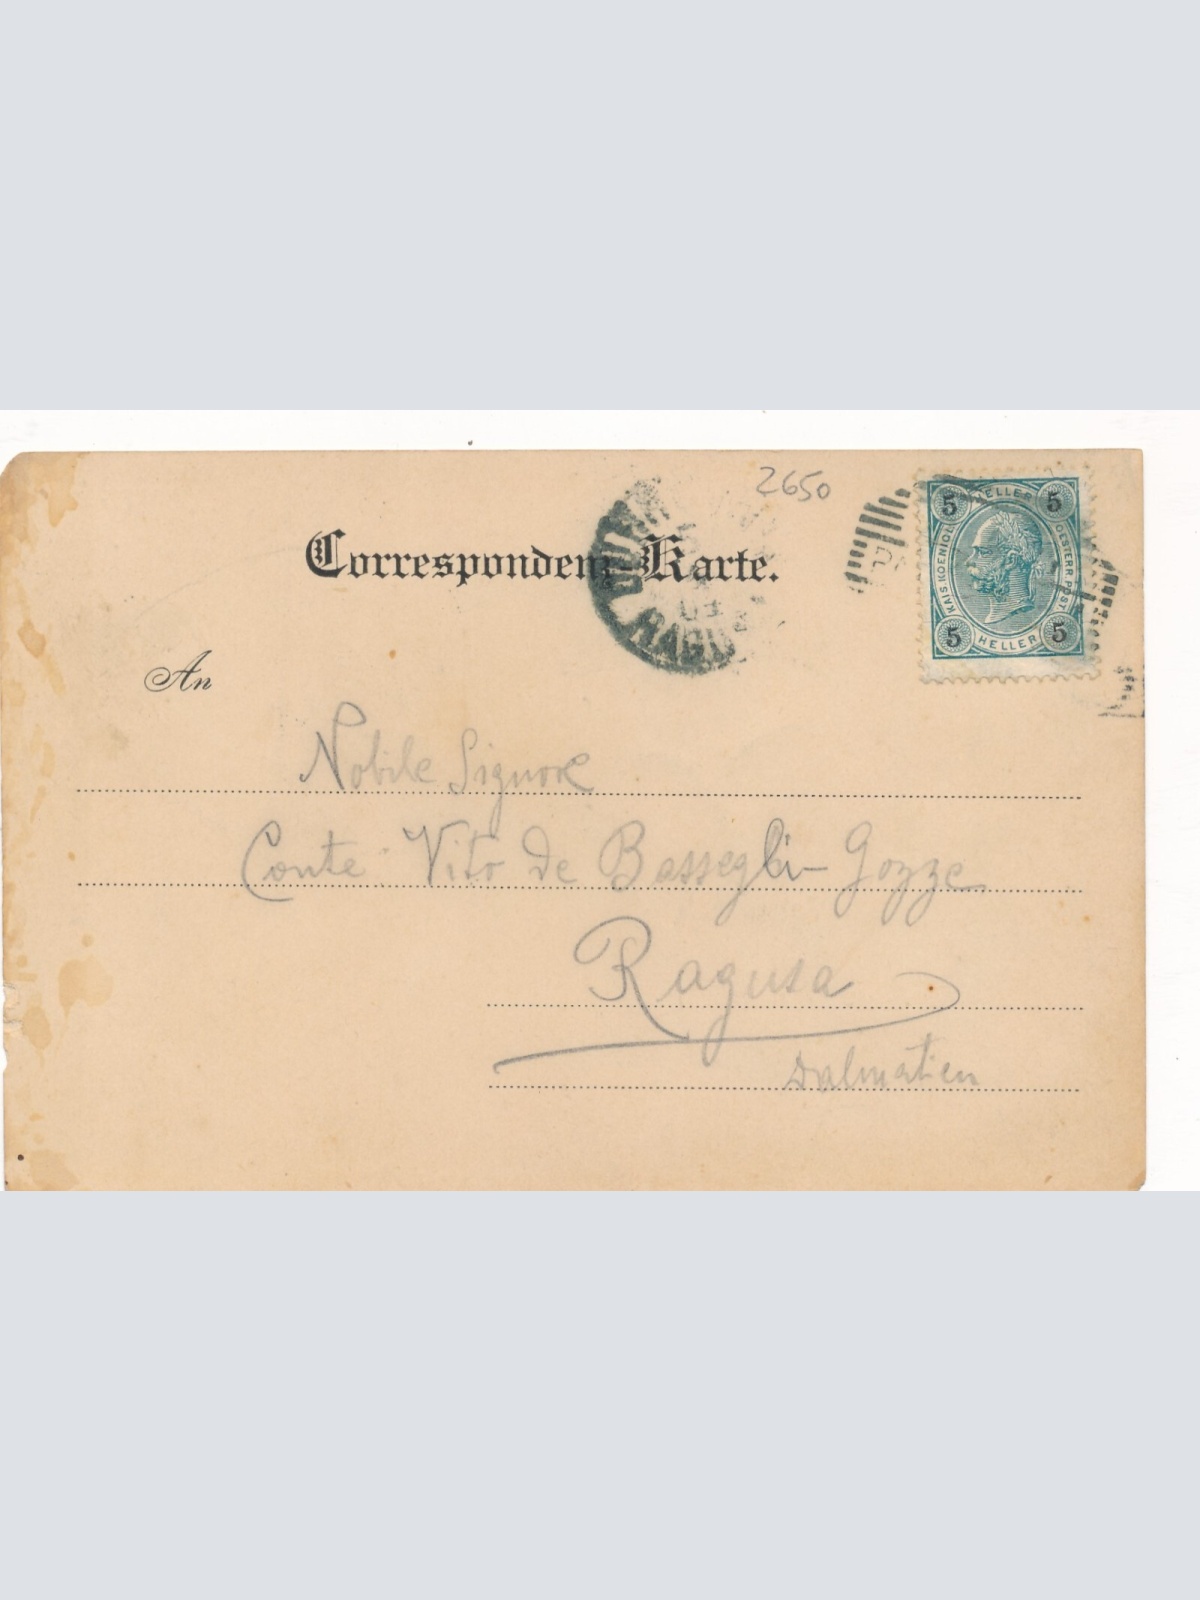 2650
Correspondenz-Karte.
HELLER
5 5
KAIS. KOENIGL. OESTERR. POST
5 5
HELLER
RAGUSA
03
An
Nobile Signore
Conte Vito de Bassegli-Gozze
Ragusa
Dalmatien